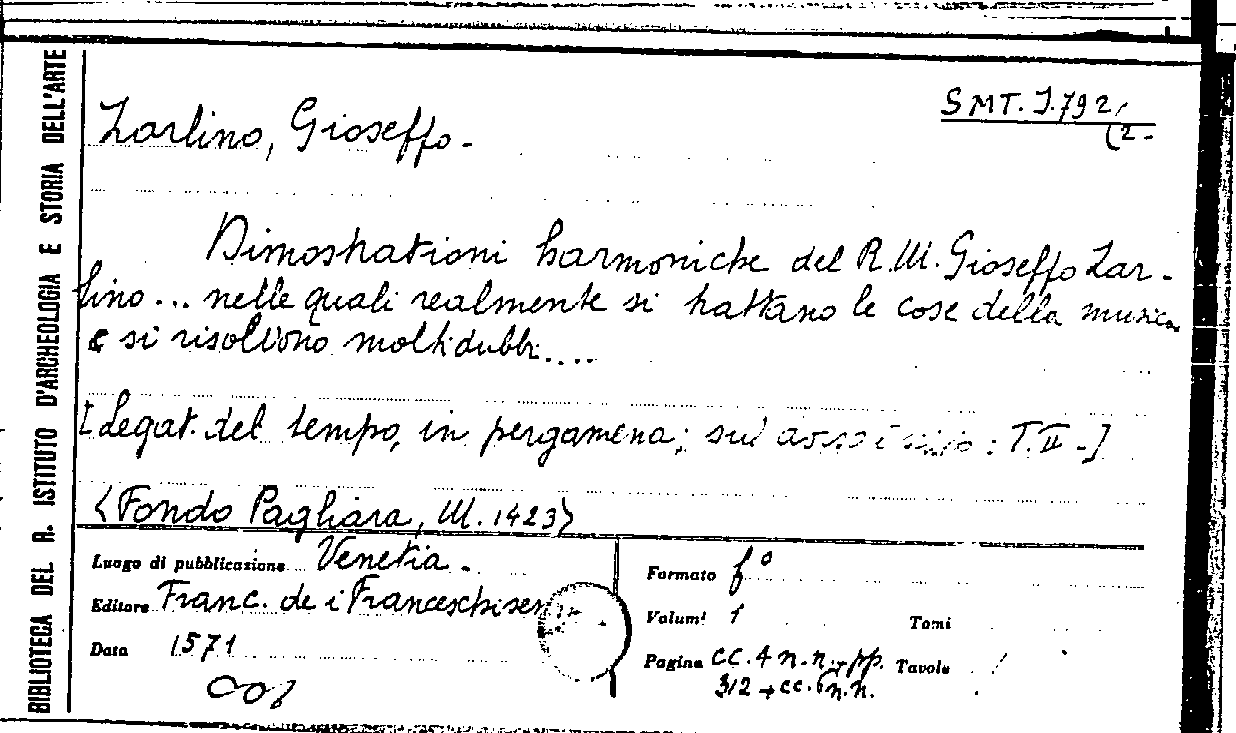 BIBLIOTECA DEL R. ISTITUTO D'ARCHEOLOGIA E STORIA DELL'ARTE
SMT. J.792/
(2-
Zarlino, Gioseffo.
Dimostrationi harmoniche del R.M. Gioseffo Zar-
lino... nelle quali realmente si trattano le cose della musica
e si risolvono molti dubbi....
[Legat. del tempo, in pergamena; sul : T. II-]
<Fondo Pagliara, M. 1423>
Luogo di pubblicazione Venetia.
Editore Franc. de i Franceschi sen
Data 1571
Formato f°
Volumi 1 Tomi
Pagine cc. 4 n.n.+pp. Tavole /
312+cc.6 n.n.